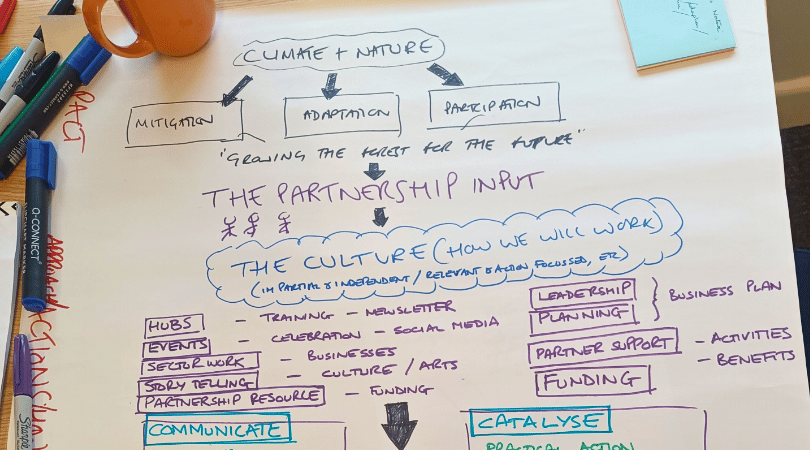 CLIMATE + NATURE
MITIGATION
ADAPTATION
PARTCIPATION
"GROWING THE FOREST FOR THE FUTURE"
THE PARTNERSHIP INPUT
THE CULTURE (HOW WE WILL WORK)
(IMPARTIAL & INDEPENDENT / RELEVANT & ACTION FOCUSSED, ETC)
HUBS - TRAINING - NEWSLETTER
EVENTS - CELEBRATION - SOCIAL MEDIA
SECTOR WORK - BUSINESSES
STORY TELLING - CULTURE / ARTS
PARTNERSHIP RESOURCE - FUNDING
LEADERSHIP
PLANNING
} BUSINESS PLAN
PARTNER SUPPORT - ACTIVITIES
- BENEFITS
FUNDING
COMMUNICATE
CATALYSE
PRACTICAL ACTION
Q-CONNECT
Sharpie